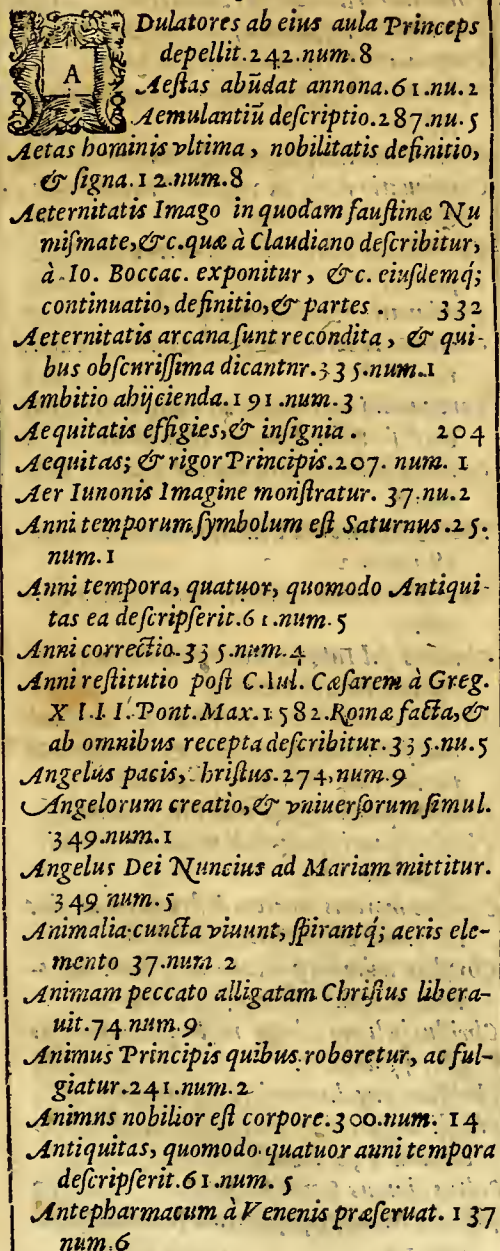 A Dulatores ab eius aula Princeps
depellit.242.num.8
Aeſtas abūdat annona.61.nu.2
Aemulantiū deſcriptio.287.nu.5
Aetas hominis vltima, nobilitatis definitio,
& ſigna.12.num.8
Aeternitatis Imago in quodam fauſtinæ Nu
miſmate,&c.quæ à Claudiano deſcribitur,
à Io. Boccac. exponitur, &c. eiuſdemq́;
continuatio, definitio,& partes. 332
Aeternitatis arcana ſunt recondita, & qui-
bus obſcuriſſima dicantnr.335.num.1
Ambitio abijcienda.191.num.3
Aequitatis effigies,& inſignia. 204
Aequitas; & rigor Principis.207. num. 1
Aer Iunonis Imagine monſtratur. 37.nu.2
Anni temporum ſymbolum eſt Saturnus.25.
num.1
Anni tempora, quatuor, quomodo Antiqui-
tas ea deſcripſerit.61.num.5
Anni correctio.335.num.4
Anni reſtitutio poſt C.Iul. Cæſarem à Greg.
XIII. Pont.Max.1582.Romæ facta,&
ab omnibus recepta deſcribitur.335.nu.5
Angelus pacis, hriſtus.274.num.9
Angelorum creatio,& vniuerſorum ſimul.
349.num.1
Angelus Dei Nuncius ad Mariam mittitur.
349 num.5
Animalia cuncta viuunt, ſpirantq́; aeris ele-
mento 37.num 2
Animam peccato alligatam Chriſtus libera-
uit.74.num.9
Animus Principis quibus roboretur, ac ful-
giatur.241.num.2
Animns nobilior eſt corpore.300.num. 14
Antiquitas, quomodo quatuor anni tempora
deſcripſerit.61.num. 5
Antepharmacum à Venenis præſeruat. 137
num.6